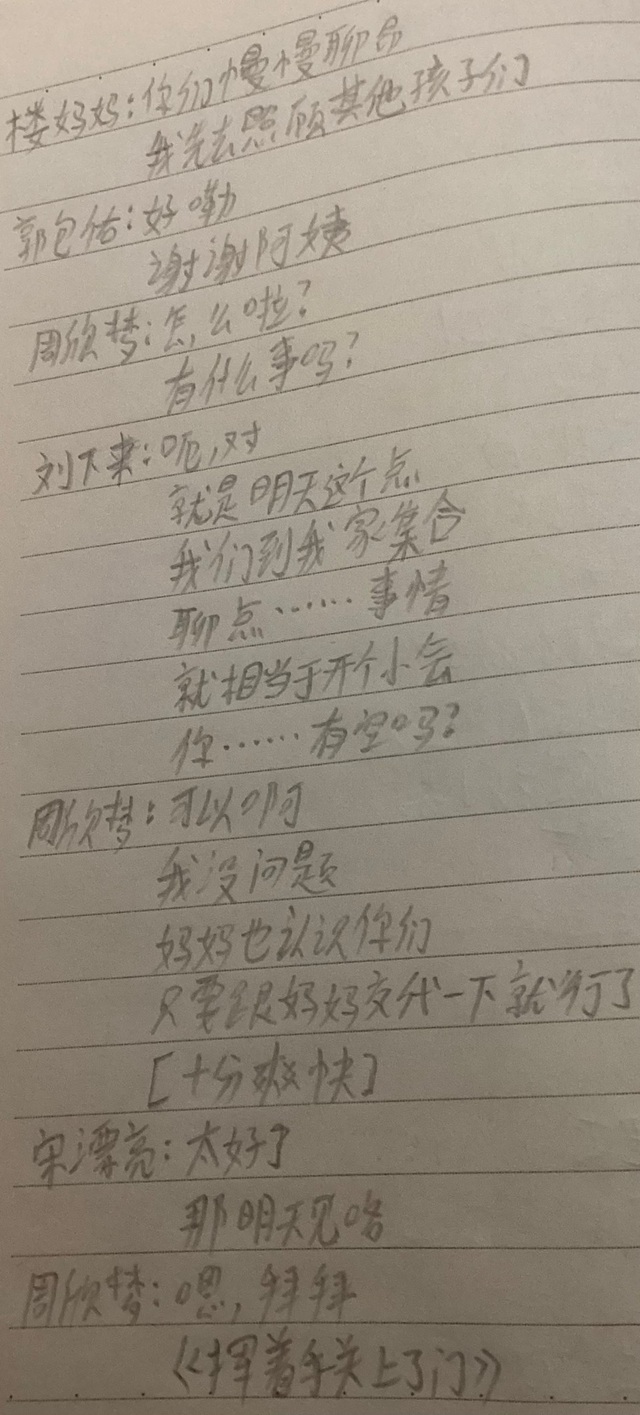 楼妈妈:你们慢慢聊
我先去照顾其他孩子们
郭包佑:好嘞
谢谢阿姨
周欣梦:怎么啦?
有什么事吗?
刘下来:呃,对
就是明天这个点
我们到我家集合
聊点……事情
就相当于开个小会
你……有空吗?
周欣梦:可以啊
我没问题
妈妈也认识你们
只要跟妈妈交代一下就行了
[十分爽快]
宋漂亮:太好了
那明天见咯
周欣梦:嗯,拜拜
《挥着手关上了门》